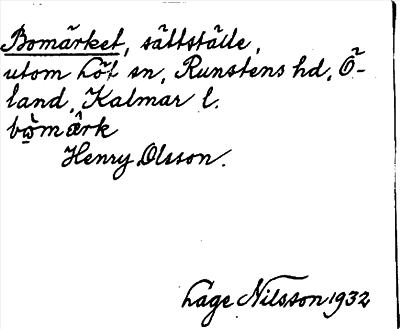 Bomärket, sättställe,
utom Löt sn, Runstens hd, Ö-
land, Kalmar l.
bὼmæ̂rk
Henry Olsson.
Lage Nilsson 1932